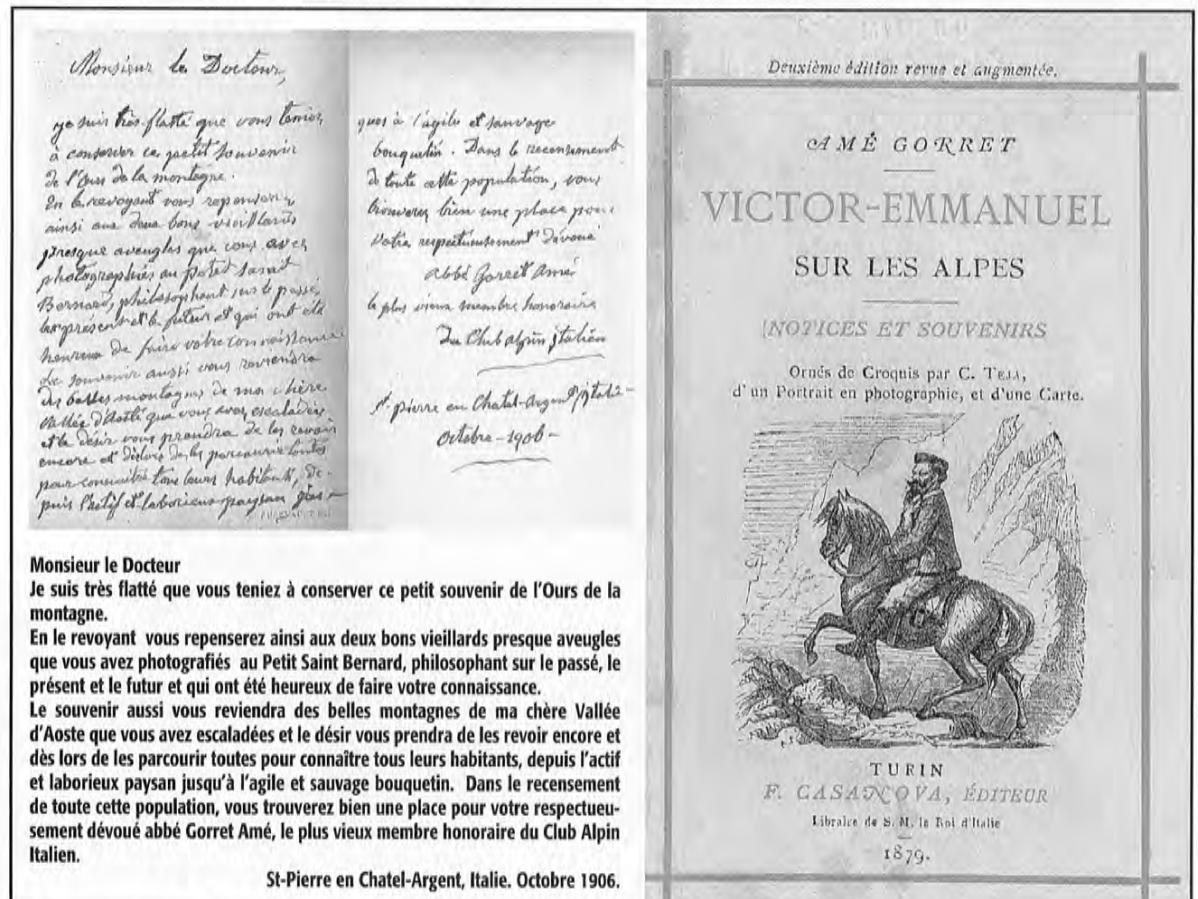 Monsieur le Docteur,
je suis très flatté que vous teniez
à conserver ce petit souvenir
de l'Ours de la montagne.
En le revoyant vous repenserez
ainsi aux deux bons vieillards
presque aveugles que vous avez
photographiés au petit Saint
Bernard, philosophant sur le passé,
le présent et le futur et qui ont été
heureux de faire votre connaissance
Le souvenir aussi vous reviendra
des belles montagnes de ma chère
Vallée d'Aoste que vous avez escaladées
et le désir vous prendra de les revoir
encore et dès lors de les parcourir toutes
pour connaître tous leurs habitants, de-
puis l'actif et laborieux paysan jus-
ques à l'agile et sauvage
bouquetin. Dans le recensement
de toute cette population, vous
trouverez bien une place pour
votre respectueusement dévoué
abbé Gorret Amé
le plus vieux membre honoraire
Du Club alpin italien
St. pierre en Chatel-Argent, Italie-
Octobre-1906-
Monsieur le Docteur
Je suis très flatté que vous teniez à conserver ce petit souvenir de l'Ours de la
montagne.
En le revoyant vous repenserez ainsi aux deux bons vieillards presque aveugles
que vous avez photografiés au Petit Saint Bernard, philosophant sur le passé, le
présent et le futur et qui ont été heureux de faire votre connaissance.
Le souvenir aussi vous reviendra des belles montagnes de ma chère Vallée
d'Aoste que vous avez escaladées et le désir vous prendra de les revoir encore et
dès lors de les parcourir toutes pour connaître tous leurs habitants, depuis l'actif
et laborieux paysan jusqu'à l'agile et sauvage bouquetin. Dans le recensement
de toute cette population, vous trouverez bien une place pour votre respectueu-
sement dévoué abbé Gorret Amé, le plus vieux membre honoraire du Club Alpin
Italien.
St-Pierre en Chatel-Argent, Italie. Octobre 1906.
Deuxième édition revue et augmentée.
AMÉ GORRET
VICTOR-EMMANUEL
SUR LES ALPES
NOTICES ET SOUVENIRS
Ornés de Croquis par C. TEJA,
d'un Portrait en photographie, et d'une Carte.
TURIN
F. CASANOVA, ÉDITEUR
Libraire de S. M. le Roi d'Italie
1879.